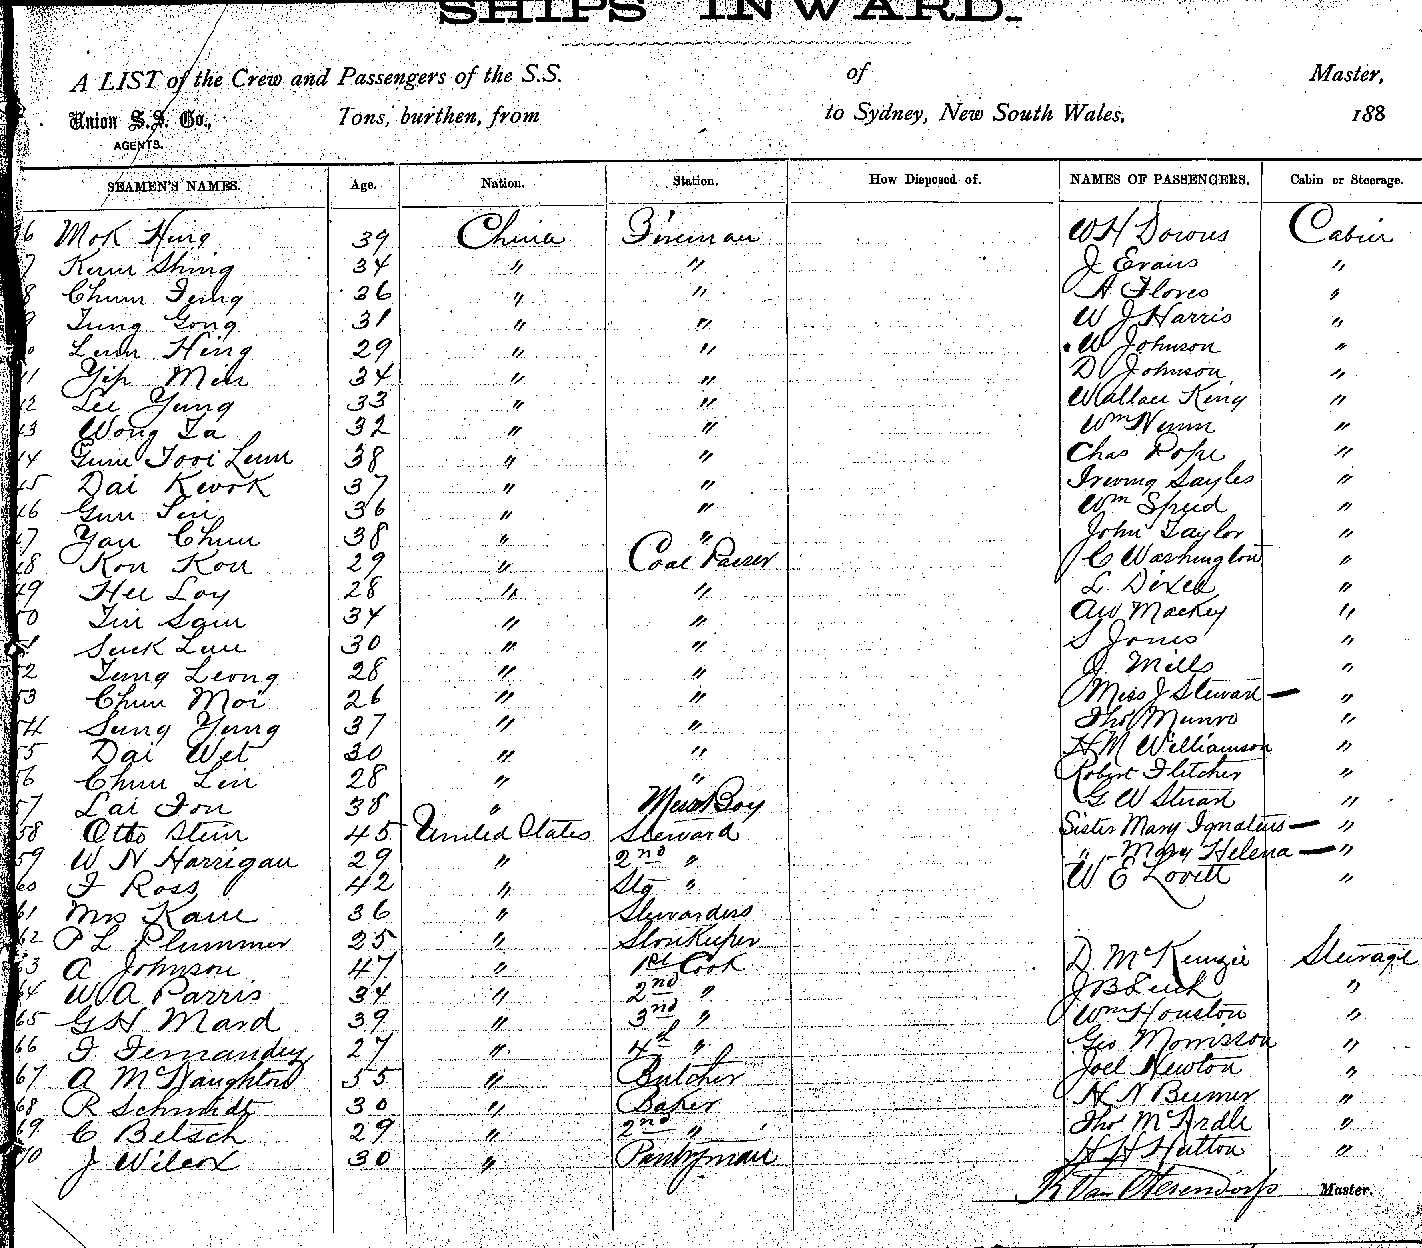 SHIPS INWARD.
A LIST of the Crew and Passengers of the S.S. of Master,
Union S.S. Co., Tons, burthen, from to Sydney, New South Wales, 188
AGENTS.
SEAMEN'S NAMES. Age. Nation. Station. How Disposed of. NAMES OF PASSENGERS. Cabin or Steerage.
36 Mok Hing 39 China Fireman W H Downs Cabin
7 Kum Shing 34 " " J Evans "
8 Chum Feing 36 " " A Flores "
9 Tung Gong 31 " " W J Harris "
0 Leun Hing 29 " " W Johnson "
41 Yip Men 34 " " D Johnson "
42 Lee Yung 33 " " Wallace King "
43 Wong Ta 32 " " Wm Nunn "
44 Gum Tooi Leun 38 " " Chas Pope "
45 Dai Kwok 37 " " Irving Sayles "
46 Gun Sin 36 " " Wm Speed "
47 Yau Chun 38 " " John Taylor "
48 Kon Kou 29 " Coal Passer C Washington "
49 Hee Loy 28 " " L Dixed "
50 Tin Sam 34 " " AW Mackey "
51 Suck Lun 30 " " S Jones "
52 Tung Leong 28 " " J Mills "
53 Chun Moi 26 " " Miss J Stewart — "
54 Sung Yung 37 " " Tho Munro "
55 Dai Wet 30 " " H M Williamson "
56 Chun Lin 28 " " Robert Fletcher "
57 Lai Fon 38 " Mess Boy G W Stuart "
58 Otto Stein 45 United States Steward Sister Mary Ignatius — "
59 W N Harrigan 29 " 2nd " " Mary Helena — "
60 F Ross 42 " Stg " W E Lovett "
61 Mrs Kane 36 " Stewardess
62 P L Plummer 25 " Storekeeper
63 A Johnson 47 " 1st Cook D McKenzie Steerage
64 W A Parris 34 " 2nd " J B Leich "
65 G H Mard 39 " 3rd " Wm Houston "
66 F Fernandey 27 " 4th " Geo Morrisson "
67 A McNaughton 55 " Butcher Joel Newton "
68 R Schmidt 30 " Baker H N Bumer "
69 C Betsch 29 " 2nd " Tho McArdle "
70 J Wilcox 30 " Pantryman H H Hutton "
Master.